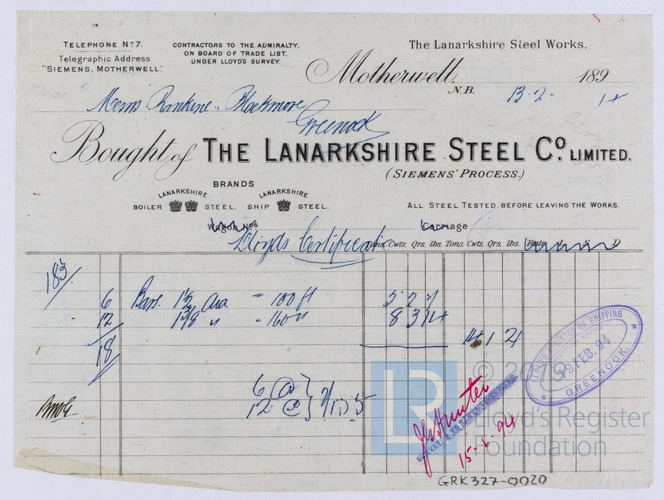 TELEPHONE Nº 7.
Telegraphic Address
"SIEMENS, MOTHERWELL"
CONTRACTORS TO THE ADMIRALTY,
ON BOARD OF TRADE LIST,
UNDER LLOYD'S SURVEY.
The Lanarkshire Steel Works,
Motherwell, 189
N.B. 13-2- 4
Rankine Blackmore
Greenock
Bought of THE LANARKSHIRE STEEL Cº. LIMITED.
(SIEMENS' PROCESS.)
BRANDS
LANARKSHIRE LANARKSHIRE
BOILER STEEL. SHIP STEEL.
ALL STEEL TESTED BEFORE LEAVING THE WORKS.
Wagon Nos Carriage
Lloyds Certificate
Cwts. Qrs. lbs. Tons. Cwts. Qrs. lbs.
183
6 Bars Dia = 100 ft 5 2
12 " = 160 " 8 3 14
18
6 @
12 @
19 FEB. 94
GREENOCK
J Hunter
15.2.94
© 20
LR
Lloyd's Register
Foundation
GRK327-0020